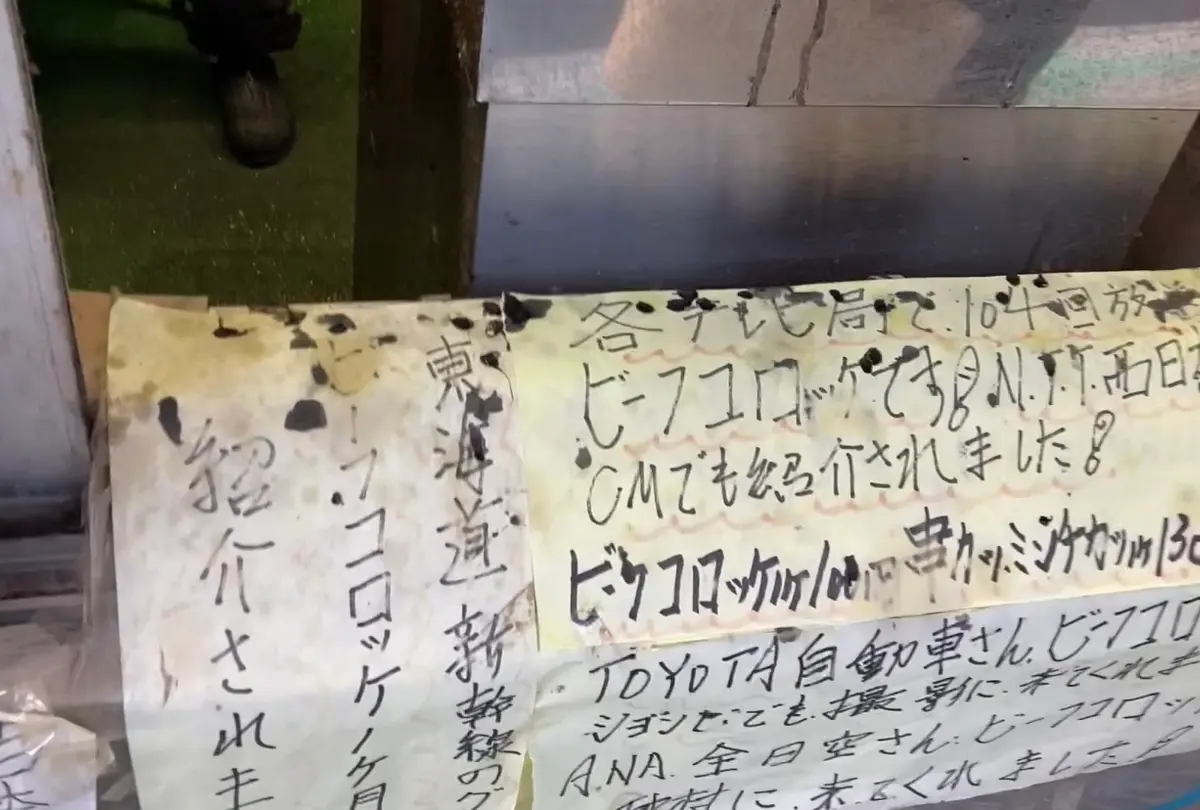 東海道新幹線のグ
ビーフコロッケ1ヶ月
紹介されま
各テレビ局で、104回放
ビーフコロッケです! N.T.T.西日本
CMでも紹介されました!
ビーフコロッケ1ケ100円 串カツ、ミンチカツ1ケ130
TOYOTA自動車さん、ビーフコロ
ションを、でも、撮影に、来てくれま
A.N.A. 全日空さん、ビーフコロッ
取材に、来てくれました!